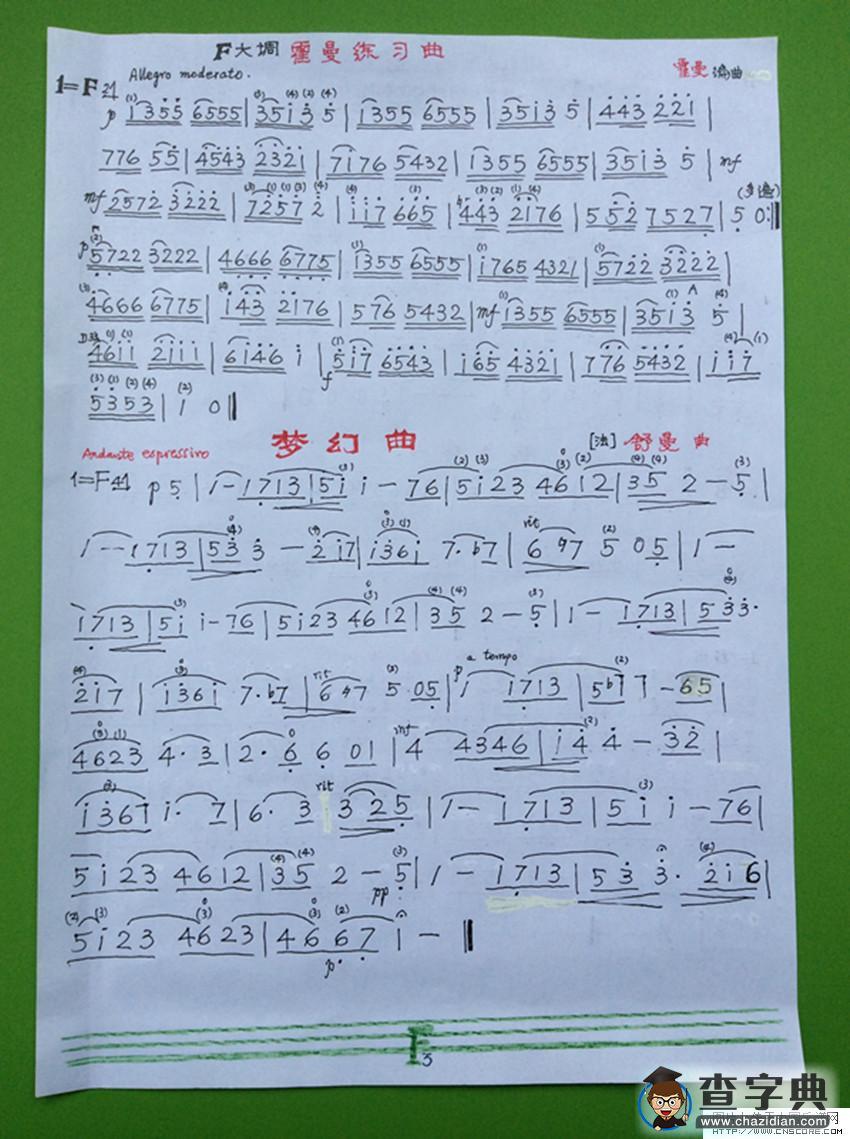 F大调 霍曼练习曲
霍曼 编曲
Allegro moderato.
1=F 2/4
p 1355 6555 | 3513 5 | 1355 6555 | 3513 5 | 443 221 |
776 55 | 4543 2321 | 7176 5432 | 1355 6555 | 3513 5 | mf
mf 2572 3222 | 7257 2 | 117 665 | 443 2176 | 552 7527 | 5 0 :||
p 5722 3222 | 4666 6775 | 1355 6555 | 1765 4321 | 5722 3222 |
4666 6775 | 143 2176 | 576 5432 | mf 1355 6555 | 3513 5 |
4611 2111 | 6146 1 | f 517 6543 | 165 4321 | 776 5432 | 117
5353 | 1 0 ||
梦幻曲
[法] 舒曼 曲
Andante espressivo
1=F 4/4 p 5 | 1 - 1713 | 51 1 - 76 | 5123 4612 | 35 2 - 5 |
1 - - 1713 | 533 - 217 | 1361 7·b7 | rit 6 7 5 05 | 1 -
1713 | 51 1 - 76 | 5123 4612 | 35 2 - 5 | 1 - 1713 | 533·
217 | 1361 7·b7 | rit 6 7 5·05 | p a tempo 1 1713 | 5b7 7 - 65 |
4623 4·3 | 2·6 6 01 | mf 4 4346 | 14 4 - 32 |
1367 1·7 | 6·3 rit 325 | 1 - 1713 | 51 1 - 76 |
5123 4612 | 35 2 - pp 5 | 1 - 1713 | 53 3· 216 |
5123 4623 | 4667 1 - ||
p
F
3
查字典
www.chazidian.com
HTTP://WWW.CNSCORE.COM